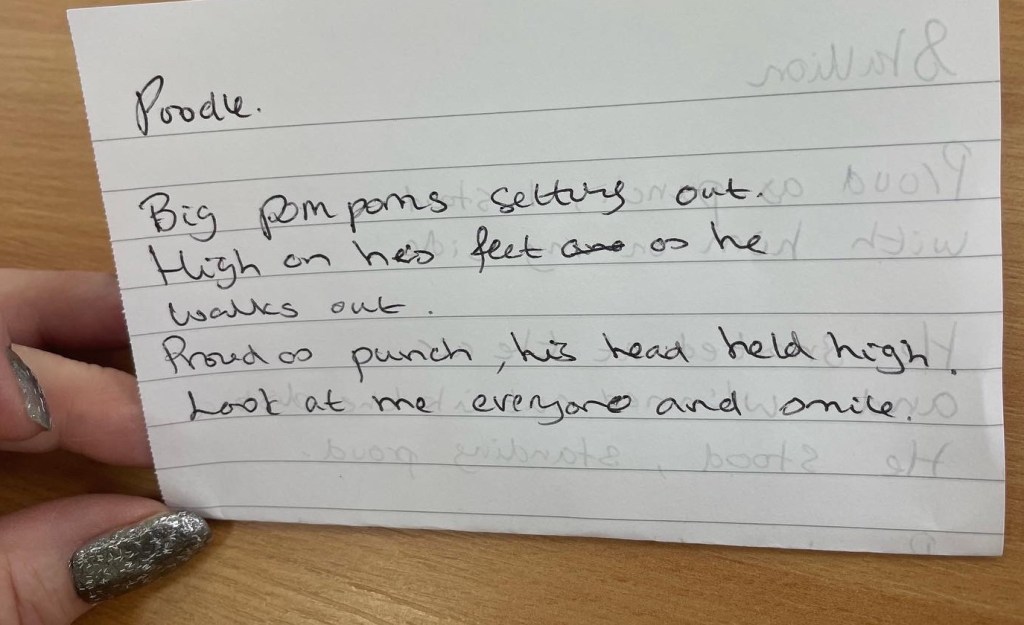 Poodle.
Big pom poms setting out.
High on his feet as he
walks out.
Proud as punch, his head held high.
Look at me everyone and smile.